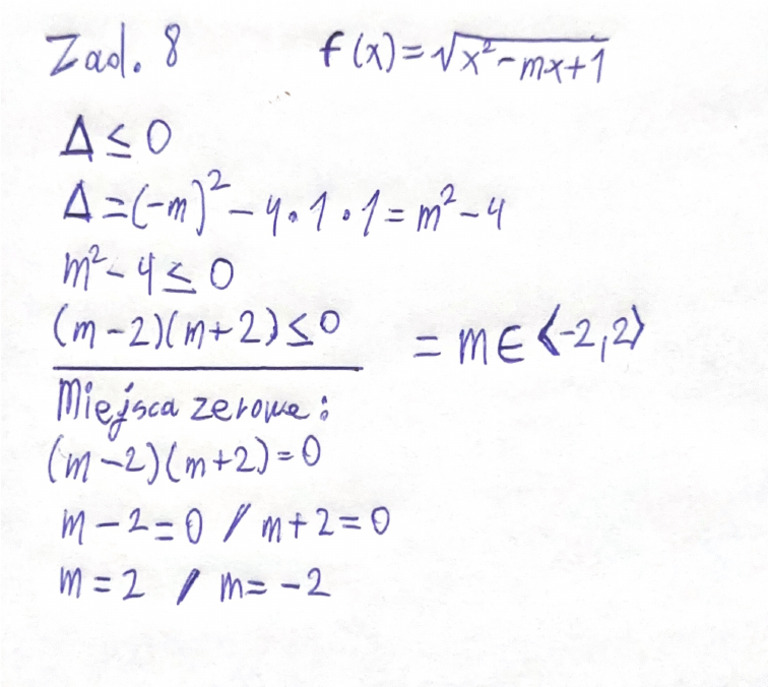 Zad. 8 f(x)=√x²-mx+1
Δ ≤ 0
Δ=(-m)²-4·1·1=m²-4
m²-4≤0
(m-2)(m+2)≤0 = m∈⟨-2,2⟩
Miejsca zerowe:
(m-2)(m+2)=0
m-2=0 / m+2=0
m=2 / m=-2